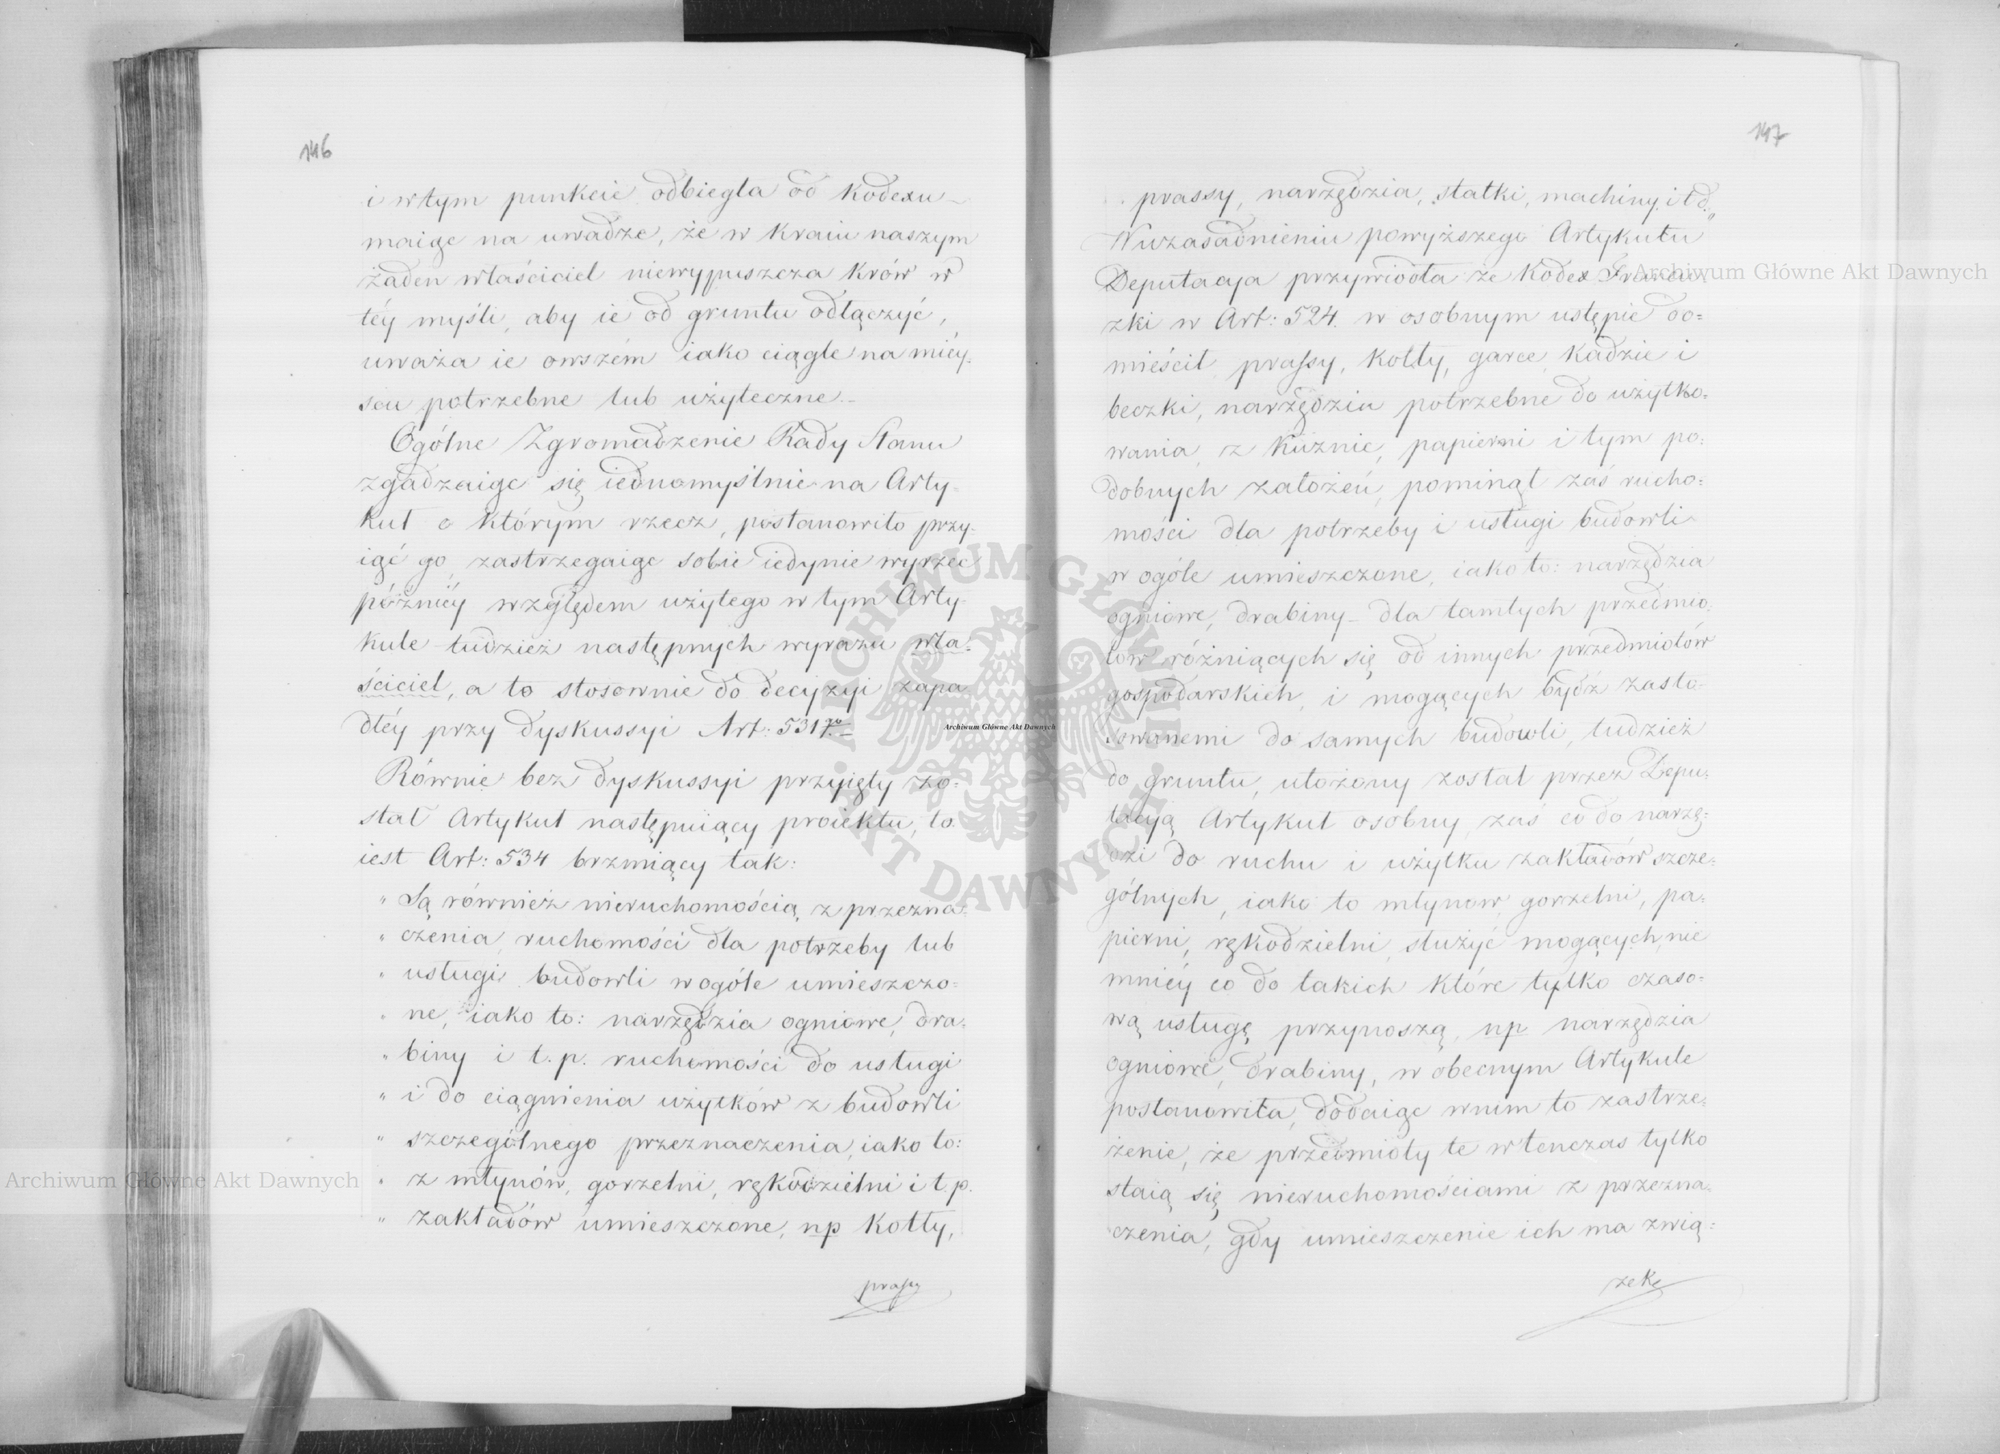 146
i w tym punkcie odbiegła od Kodexu_
maiąc na uwadze, że w Kraiu naszym
żaden właściciel niewypuszcza Krów w
téy myśli, aby ie od gruntu odłączyć,
uważa ie owszém iako ciągle na miéy=
scu potrzebne lub użyteczne._
Ogólne Zgromadzenie Rady Stanu
zgadzaiąc się iednomyślnie na Arty=
kuł o którym rzecz, postanowiło przy=
iąć go zastrzegaiąc sobie iedynie wyrzec
późniéy względem użytego w tym Arty=
kule tudzież następnych wyrazu wła=
ściciel, a to stosownie do decyzyi zapa
dłéy przy dyskussyi Art: 531go_
Równie bez dyskussyi przyięty zo=
stał Artykuł następuiący proiektu, to
iest Art: 534 brzmiący tak:
" Są również nieruchomością z przezna=
" czenia, ruchomości dla potrzeby lub
" usługi budowli w ogóle umieszczo=
" ne, iako to: narzędzia ogniowe, dra=
" biny i t. p. ruchomości do usługi
" i do ciągnienia użytków z budowli
" szczególnego przeznaczenia, iako to:
" z młynów, gorzelni, rękodzielni i t. p.
" zakładów umieszczone, np Kotły,
prassy
147
prassy, narzędzia, statki, machiny i t d."
W uzasadnieniu powyższego Artykułu
Deputacya przywiodła że Kodex Francu=
zki w Art: 524. w osobnym ustępie do=
mieścił prassy, Kotły, garce, Kadzie i
beczki, narzędzia potrzebne do użytko=
wania, z Kuźnic, papierni i tym po=
dobnych założeń, pominął zaś rucho=
mości dla potrzeby i usługi budowli
w ogóle umieszczone, iako to: narzędzia
ogniowe, drabiny_ dla tamtych przedmio=
tów różniących się od innych przedmiotów
gospodarskich, i mogących bydź zasto=
sowanemi do samych budowli, tudzież
do gruntu, ułożony został przez Depu=
tacyą Artykuł osobny, zaś co do narzę=
dzi do ruchu i użytku zakładów szcze=
gólnych, iako to młynow, gorzelni, pa=
pierni, rękodzielni, służyć mogących, nie
mniéy co do takich które tylko czaso=
wą usługę przynoszą, np narzędzia
ogniowe, drabiny, w obecnym Artykule
postanowiła, dodaiąc w nim to zastrze=
żenie, że przedmioty te wtenczas tylko
staią się nieruchomościami z przezna=
czenia, gdy umieszczenie ich ma zwią=
zek
Archiwum Główne Akt Dawnych
Archiwum Główne Akt Dawnych
Archiwum Główne Akt Dawnych
ARCHIWUM GŁÓWNE AKT DAWNYCH